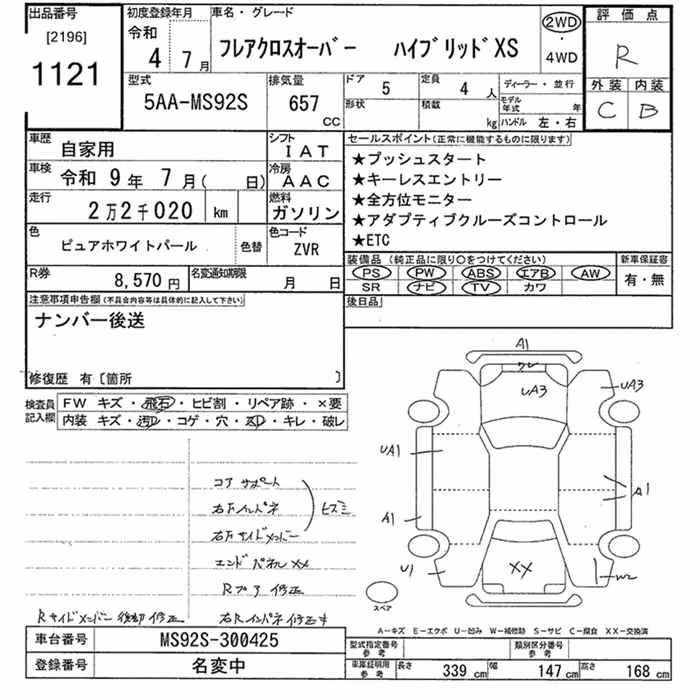 出品番号
[2196]
1121
初度登録年月
令和
4 7月
車名・グレード
フレアクロスオーバー ハイブリッドXS
2WD
・
4WD
評価点
R
外装 内装
C B
型式
5AA-MS92S
排気量
657
CC
ドア
5
定員
4 人
形状
積載
kg
ディーラー・並行
モデル年式 年
ハンドル 左・右
車歴
自家用
シフト
IAT
車検
令和 9年 7月( 日)
冷房
AAC
走行
2万2千020 km
燃料
ガソリン
色
ピュアホワイトパール
色替
色コード
ZVR
R券
8,570円
名変通知期限
月 日
セールスポイント(正常に機能するものに限ります)
★プッシュスタート
★キーレスエントリー
★全方位モニター
★アダプティブクルーズコントロール
★ETC
装備品 (純正品に限り○をつけてください)
PS PW ABS エアB AW
SR ナビ TV カワ
新車保証書
有・無
後日品
注意事項申告欄(不具合内容等は具体的に記入して下さい)
ナンバー後送
修復歴 有〔箇所 〕
検査員記入欄
FW キズ・飛石・ヒビ割・リペア跡・×要
内装 キズ・汚レ・コゲ・穴・凹・キレ・破レ
コアサポート
右Fインパネ
右Fサイドメンバー
ヒズミ
エンドパネルXX
Rフロア 修正
Rサイドメンバー 後部 修正
右Rインパネ修正キ
A1
UA3
UA3
UA1
A1
A1
U1
XX
W2
スペア
A-キズ E-エクボ U-凹み W-補修跡 S-サビ C-腐食 XX-交換済
車台番号
MS92S-300425
登録番号
名変中
型式指定番号
参考
類別区分番号
参考
車庫証明用
参考
長さ 339 cm
幅 147 cm
高さ 168 cm